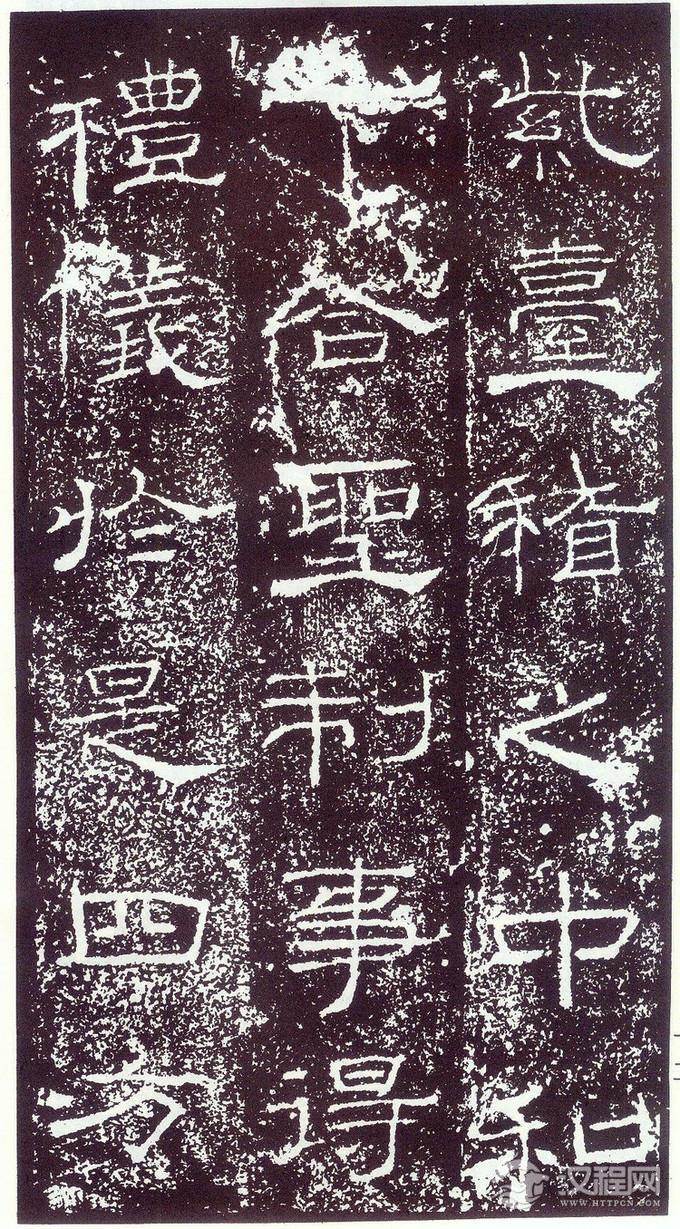 紫臺稽之中和
下合聖制事得
禮儀於是四方
汉程网
WWW.HTTPCN.COM